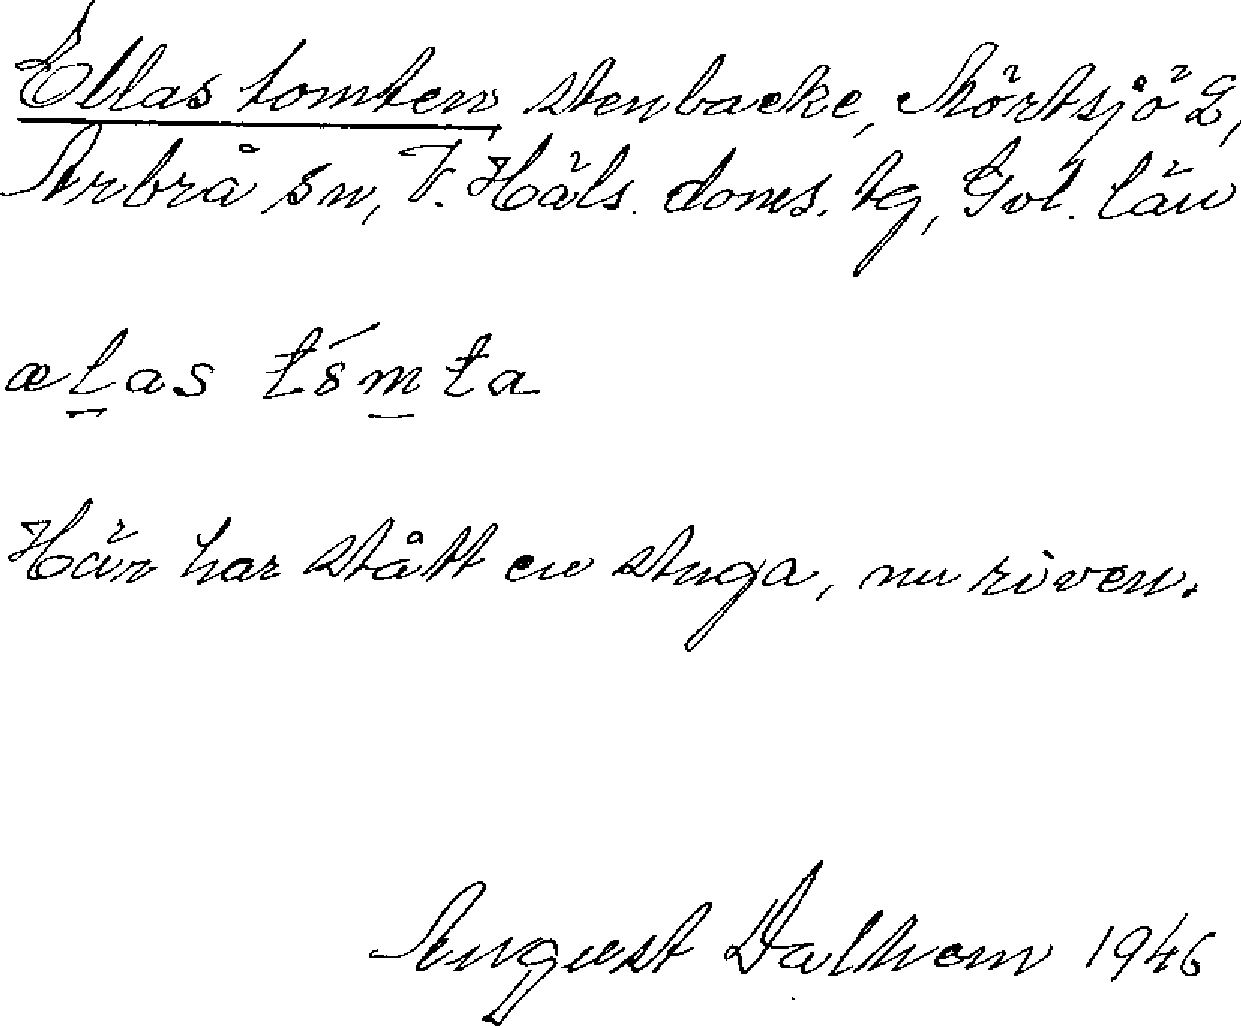 Ellas tomten stenbacke, Mörtsjö 2,
Arbrå sn, V. Häls. doms. tg, Gvl. län
ælas tsmta
Här har stått en stuga, nu riven.
August Dalhem 1946